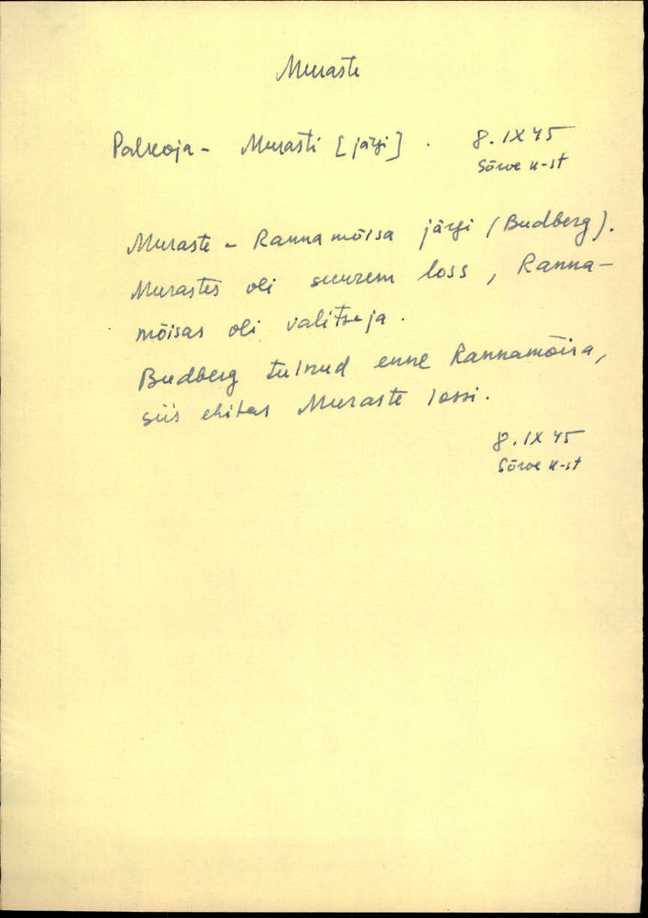 Muraste
Palkoja - Murasti [järgi].
8. IX 45
Sõrve k-st
Muraste - Rannamõisa järgi (Budberg).
Murastes oli suurem loss, Ranna-
mõisas oli valitseja.
Budberg tulnud enne Rannamõisa,
siis ehitas Muraste lossi.
8. IX 45
Sõrve k-st